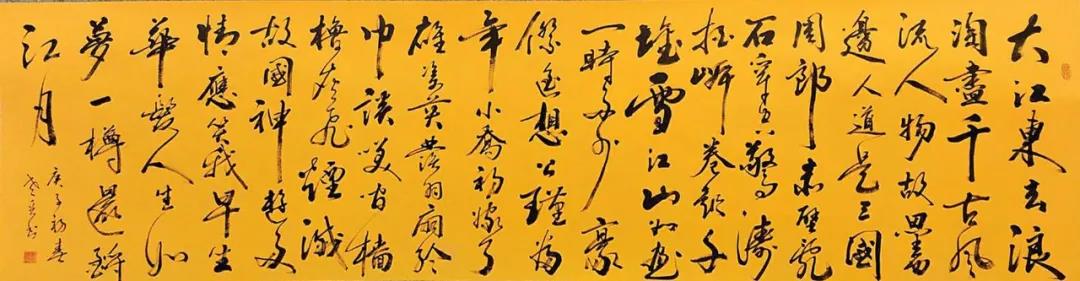 大江東去浪
淘盡千古風
流人物故壘西
邊人道是三國
周郎赤壁亂
石穿空驚濤
拍岸卷起千
堆雪江山如畫
一時多少豪
傑遙想公瑾當
年小喬初嫁了
雄姿英發羽扇綸
巾談笑間檣
櫓灰飛煙滅
故國神遊多
情應笑我早生
華髮人生如
夢一樽還酹
江月
庚子初春